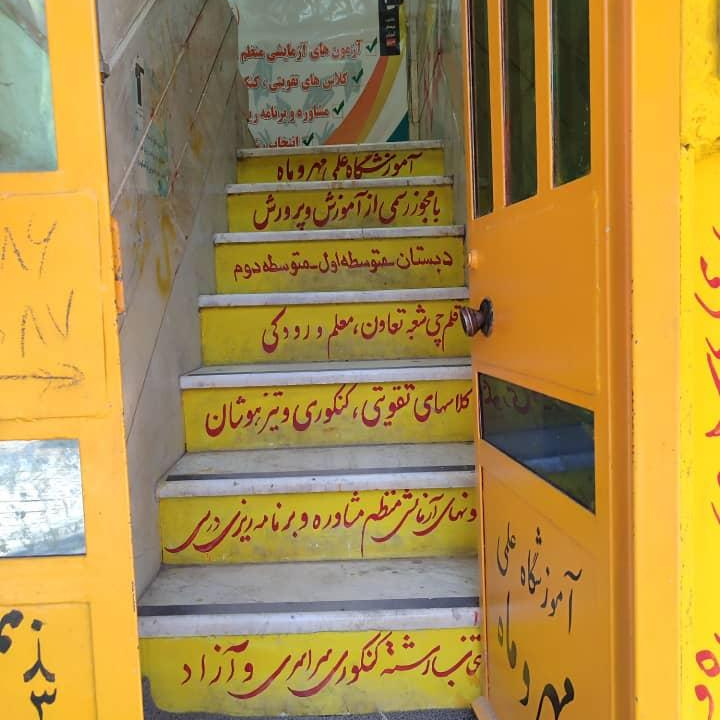 آزمون های آزمایشی منظم
کلاس های تقویتی ، کنک
مشاوره و برنامه ری
انتخاب
آموزشگاه علمی مهر و ماه
با مجوز رسمی از آموزش و پرورش
دبستان - متوسطه اول - متوسطه دوم
قلم چی شعبه تعاون ، معلم و رودکی
کلاسهای تقویتی ، کنکوری و تیزهوشان
ونهای آزمایشی منظم مشاوره و برنامه ریزی درسی
رشته کنکوری سراسری و آزاد
آموزشگاه علمی
مهر و ماه